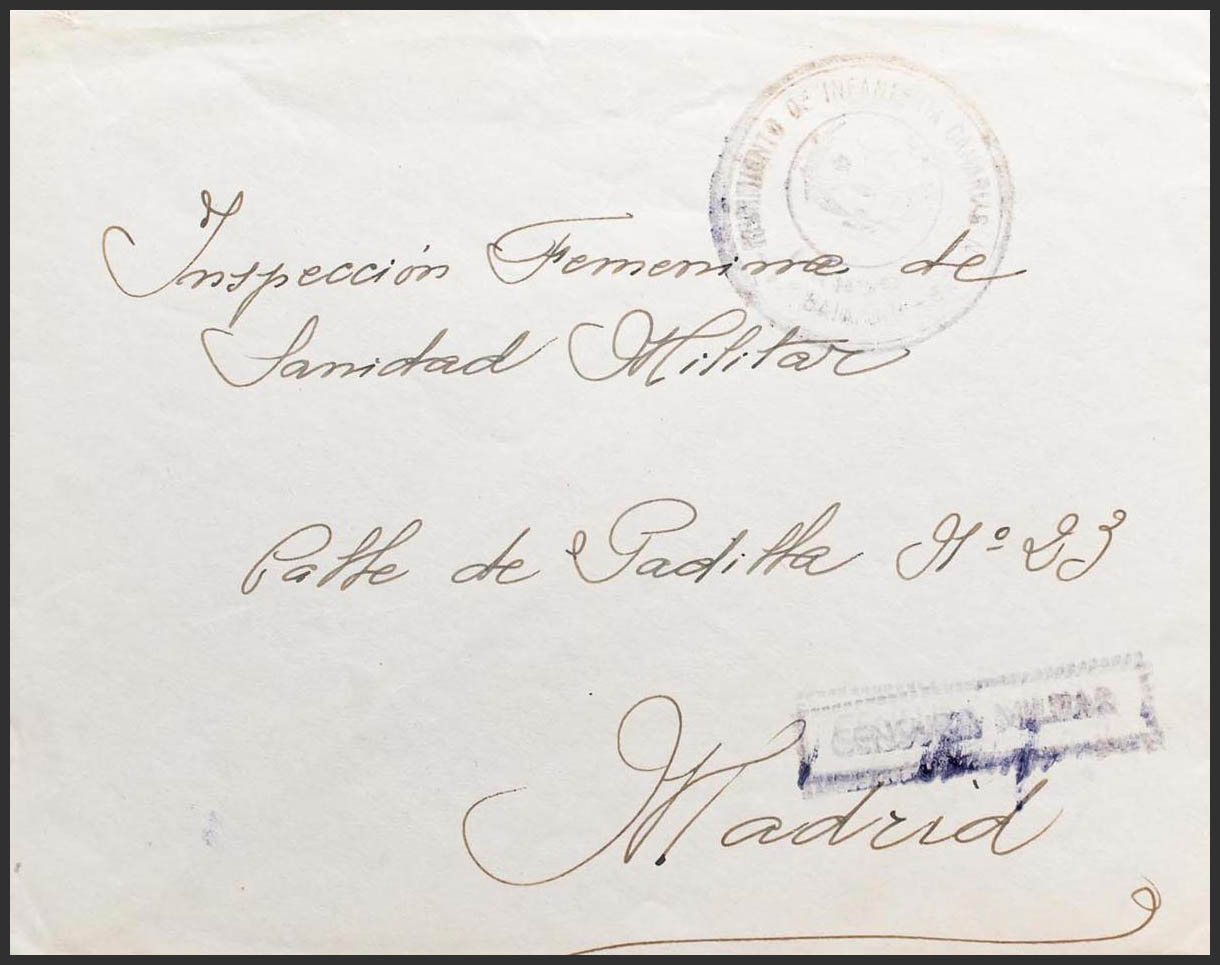 REGIMIENTO DE INFANTERIA CANARIAS
Inspección Femenina de
Sanidad Militar
Calle de Padilla Nº 23
CENSURA MILITAR
Madrid